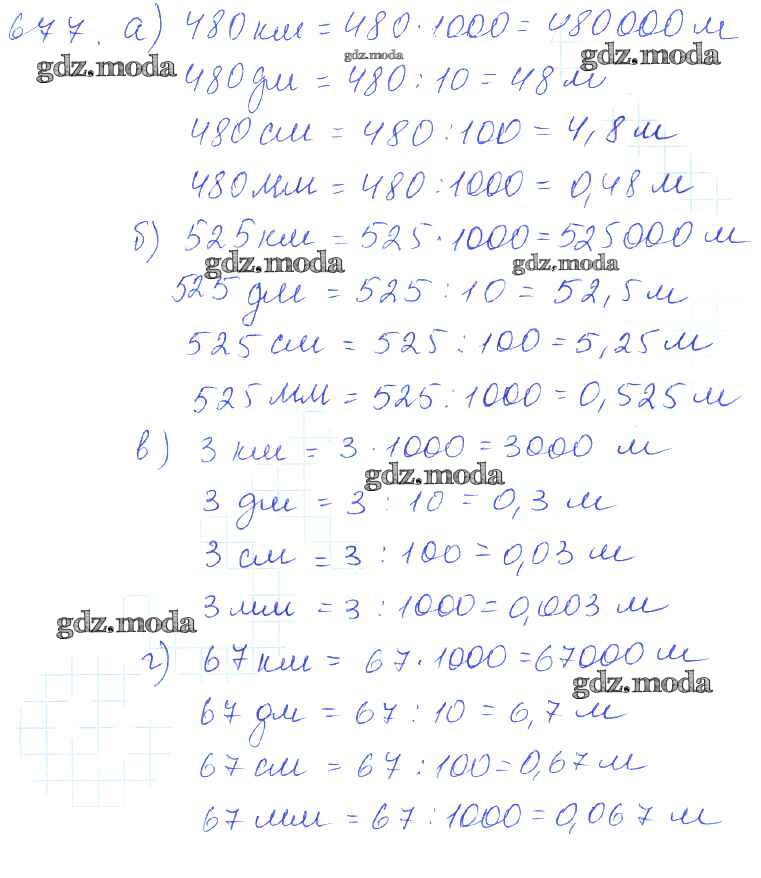 677. а) 480 км = 480 · 1000 = 480000 м
gdz.moda gdz.moda gdz.moda
480 дм = 480 : 10 = 48 м
480 см = 480 : 100 = 4,8 м
480 мм = 480 : 1000 = 0,48 м
б) 525 км = 525 · 1000 = 525000 м
gdz.moda gdz.moda
525 дм = 525 : 10 = 52,5 м
525 см = 525 : 100 = 5,25 м
525 мм = 525 : 1000 = 0,525 м
в) 3 км = 3 · 1000 = 3000 м
gdz.moda
3 дм = 3 : 10 = 0,3 м
3 см = 3 : 100 = 0,03 м
3 мм = 3 : 1000 = 0,003 м
gdz.moda
г) 67 км = 67 · 1000 = 67000 м
gdz.moda
67 дм = 67 : 10 = 6,7 м
67 см = 67 : 100 = 0,67 м
67 мм = 67 : 1000 = 0,067 м